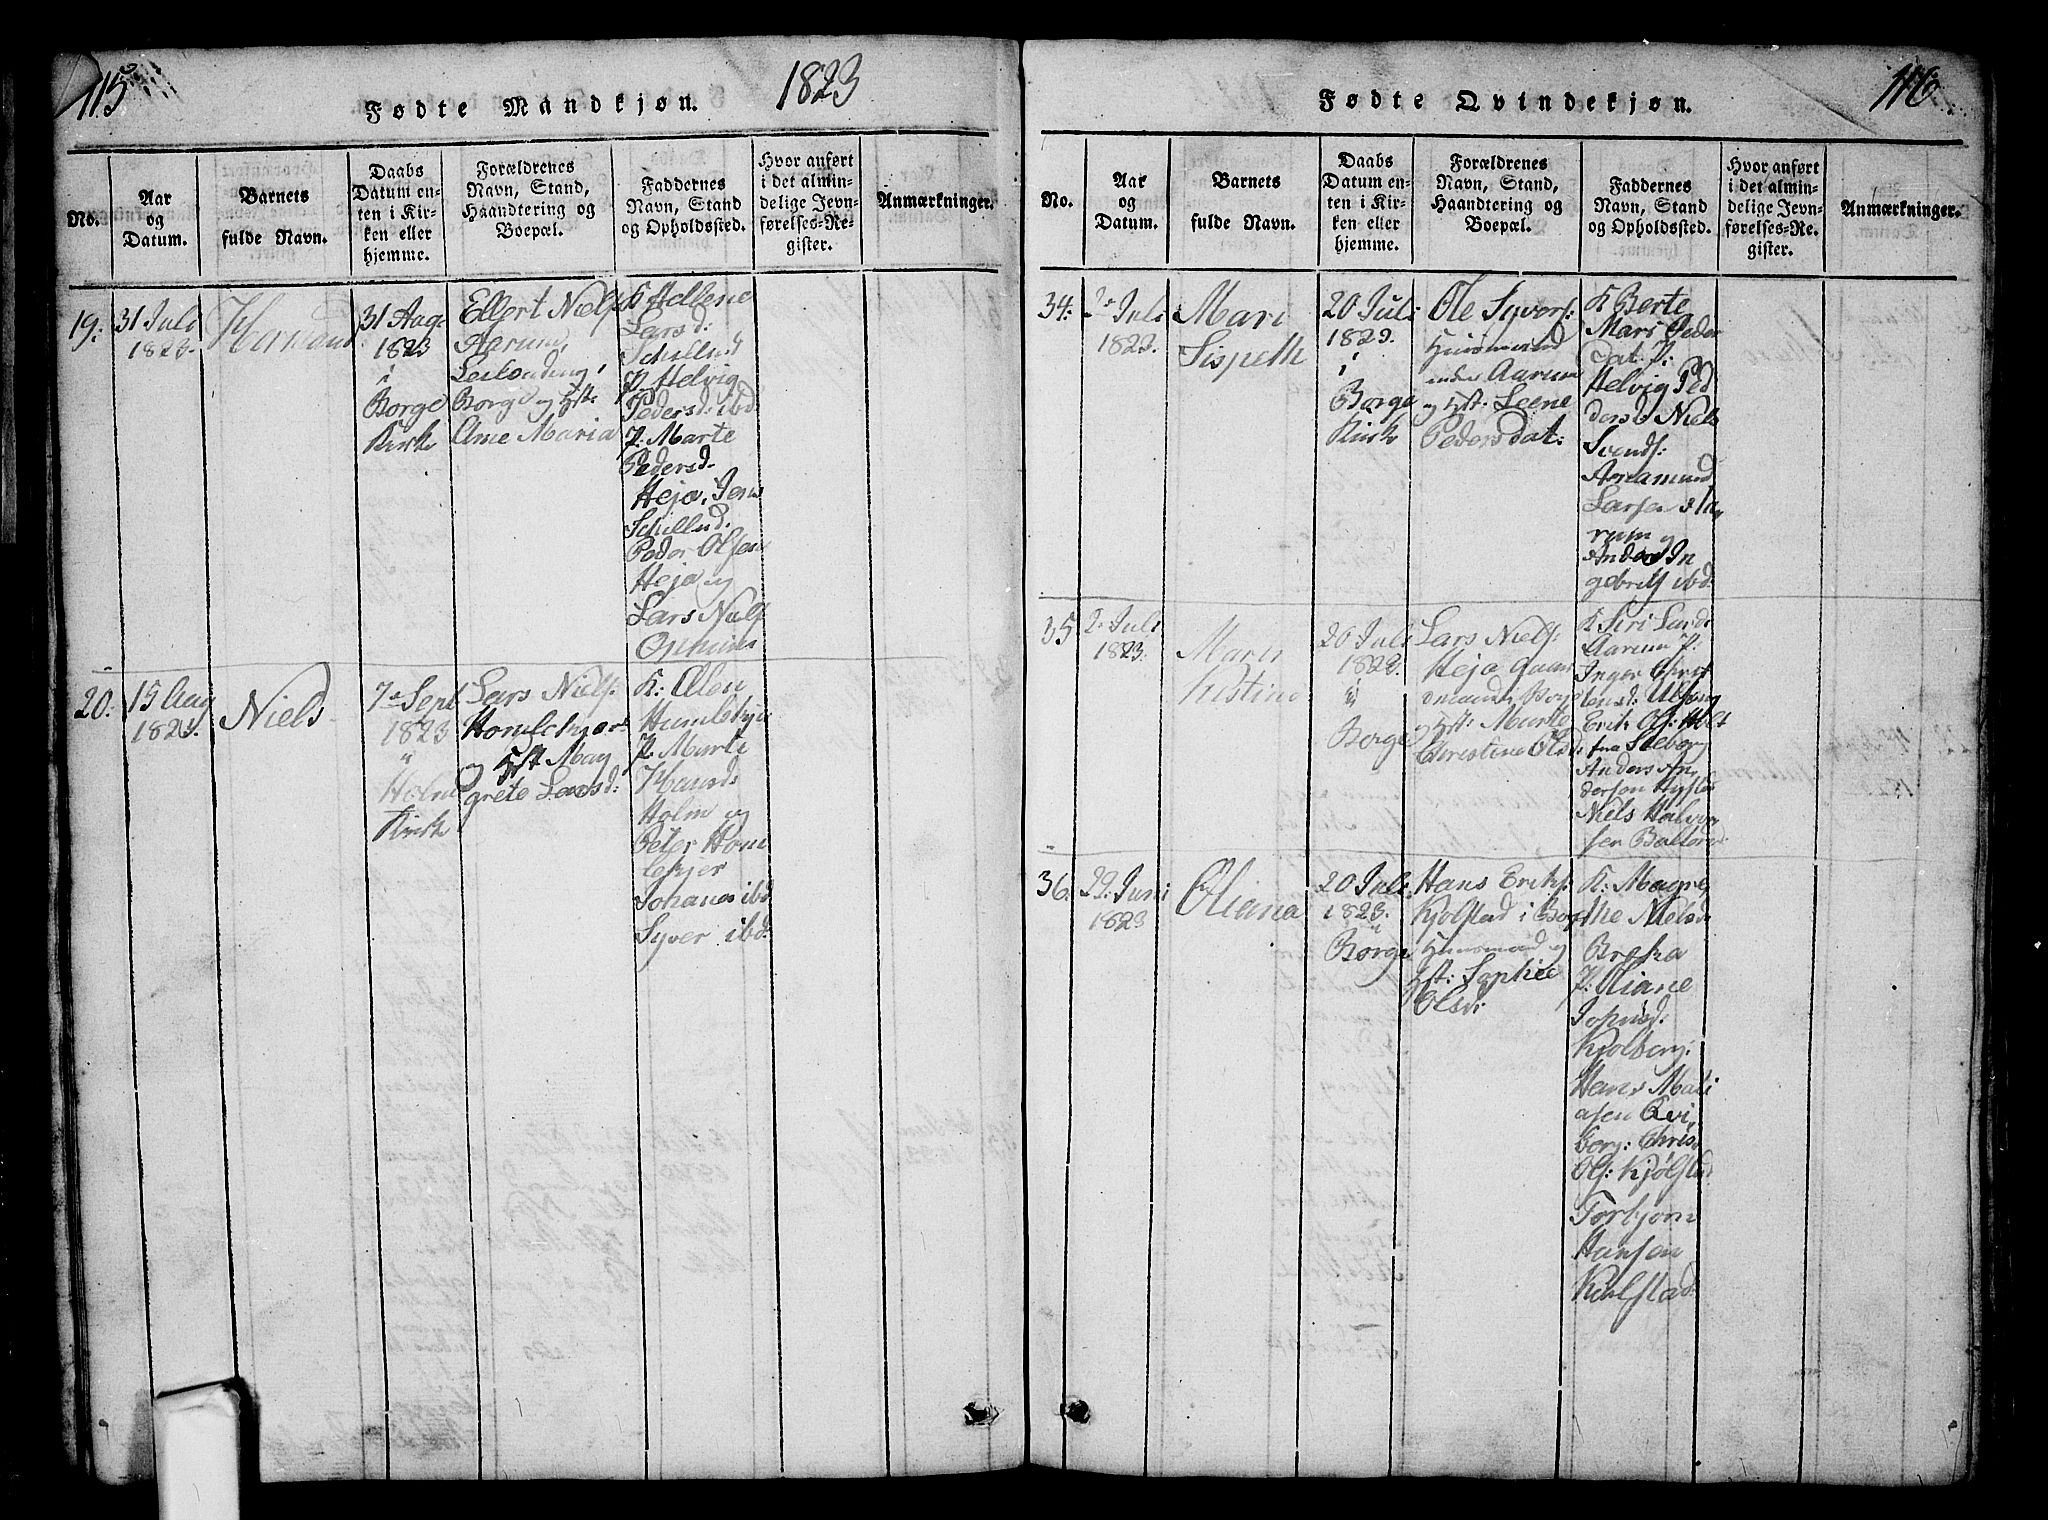 115
Fødte Mandkjøn.
1823
No.
Aar
og
Datum.
Barnets
fulde Navn.
Daabs
Datum en-
ten i Kir-
ken eller
hjemme.
Forældrenes
Navn, Stand,
Haandtering og
Boepæl.
Faddernes
Navn, Stand
og Opholdssted.
Hvor anført
i det almin-
delige Jevn-
førelses-Re-
gister.
Anmærkninger.
19:
31 Juli
1823.
31 Aug.
1823
i
Borge
Kirke
Ellert Niels.
Aarum,
Leilending i
Borge og Hst:
Ane Maria
K Hellene
Lars d:
Schillud
P. Helvig
Pedersd: ibd.
P. Marte
Pedersd.
Heja, Jens
Schillud:
Peder Olsen
Heja og
Lars Niels.
20:
15 Aug
1823.
Niels
7de Sept
1823
Holm
Kirke
Lars Niels.
Homlekjer
og Hst Mag
grete Larsd:
K: Olen
P. Marte
Holm og
Peter Hom
lekjer
Johanes ibd
Syver ibd:
116
Fødte Qvindekjøn.
No.
Aar
og
Datum.
Barnets
fulde Navn.
Daabs
Datum en-
ten i Kir-
ken eller
hjemme.
Forældrenes
Navn, Stand,
Haandtering og
Boepæl.
Faddernes
Navn, Stand
og Opholdssted.
Hvor anført
i det almin-
delige Jevn-
førelses-Re-
gister.
Anmærkninger.
34:
2de Juli
1823.
Mari
Lispeth
20 Juli
1823.
i
Borge
Kirke
Ole Syvers:
Huusmand
under Aarum
og Hst: Leene
Pedersdat:
K Berte
Mari Peder
dat. P:
Helvig Ped
dersd Niels
Svends:
Amamund
Larsen Aa,
rum og
Anders In
gebrits ibd:
35
2: Juli
1823.
Mari
Kristine
20 Juli
1823.
i
Borge
Lars Niels:
Heja gaar
dmand i Borge
og Hst: Marte
Christine Olsd:
K Siri Lars
Aarum P:
Inger Chris
tensd:
Erik Ols: Holt
Anders An,
dersen
Niels Halvor
sen
36.
29. Juni
1823
Oliana
20 Juli
1823.
i
Borge
Hans Eriks.
Kjølstad i Borge
Huusmand og
Hst: Sophie
Olsd:
K: Magre
the Nielsd:
Breka
P: Oliane
Johnsd:
Kjølberg:
Hans Mati
asen Qvi,
berg: Chris.
Ols: Kjølstad
Torbjørn
Hansen
Kjølstad: